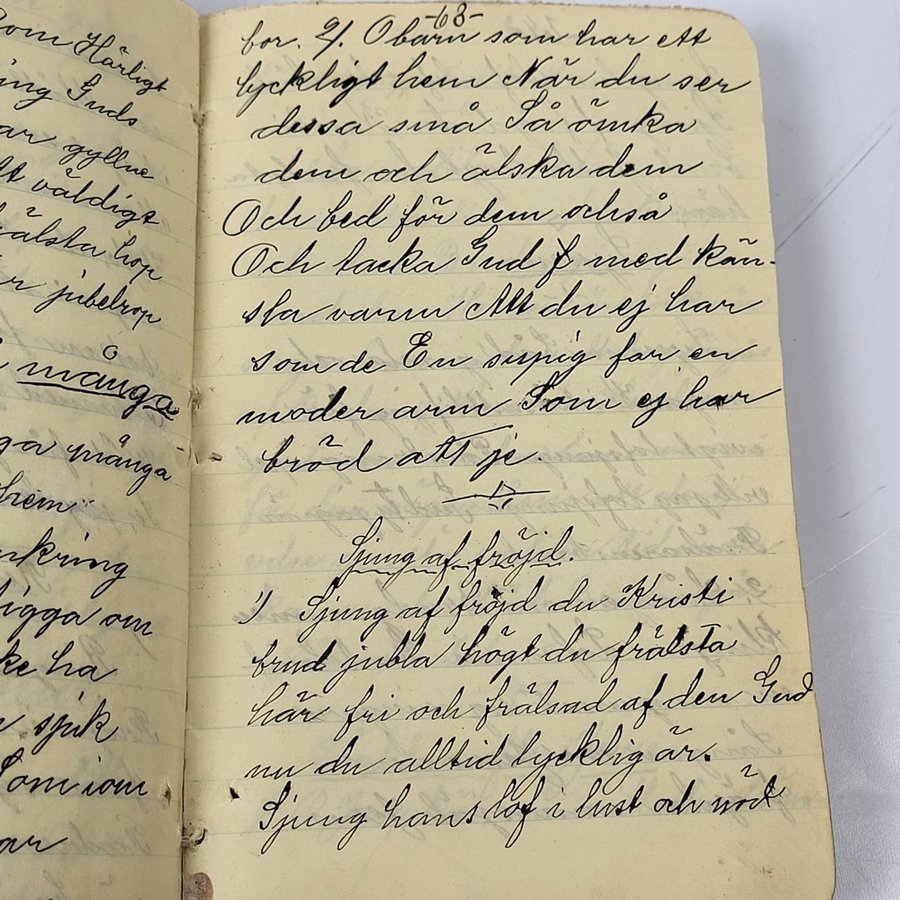 om Härligt
ing Guds
ar gyllne
tt väldigt
älsta hop
r jubelrop
många
ga många
hem
nkring
tigga om
ke ha
sjuk
Som iom
ar
-63-
bor. 2/. O barn som har ett
lyckligt hem När du ser
dessa små Så ömka
dem och älska dem
Och bed för dem också
Och tacka Gud f med kän-
sla varm Att du ej har
som de En supig far en
moder arm Som ej har
bröd att je.
Sjung af fröjd.
1) Sjung af fröjd du Kristi
brud jubla högt du frälsta
här fri och frälsad af den Gud
nu du alltid lycklig är.
Sjung hans lof i lust och nöd